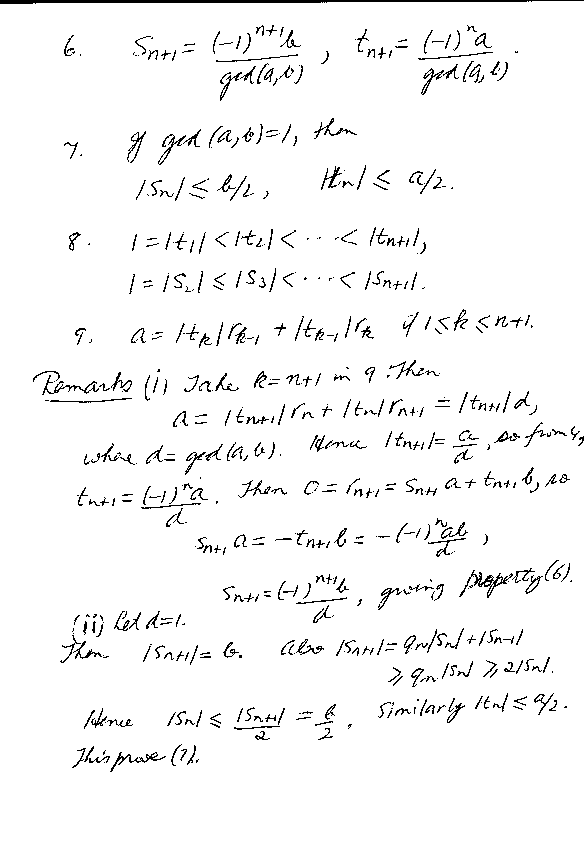 6. S_{n+1} = (-1)^{n+1} b / gcd(a,b) , t_{n+1} = (-1)^n a / gcd(a,b) .
7. If gcd (a,b)=1, then
|S_n| ≤ b/2 , |t_n| ≤ a/2.
8. 1 = |t_1| < |t_2| < ··· < |t_{n+1}|,
1 = |S_2| ≤ |S_3| < ··· < |S_{n+1}|.
9. a = |t_k| r_{k-1} + |t_{k-1}| r_k if 1 ≤ k ≤ n+1.
Remarks (i) Take k = n+1 in 9. Then
a = |t_{n+1}| r_n + |t_n| r_{n+1} = |t_{n+1}| d,
where d = gcd (a,b). Hence |t_{n+1}| = a/d , so from 4,
t_{n+1} = (-1)^n a / d . Then 0 = r_{n+1} = S_{n+1} a + t_{n+1} b, so
S_{n+1} a = -t_{n+1} b = -(-1)^n ab / d ,
S_{n+1} = (-1)^{n+1} b / d , giving property (6).
(ii) Let d=1.
Then |S_{n+1}| = b. Also |S_{n+1}| = q_n |S_n| + |S_{n-1}|
≥ q_n |S_n| ≥ 2|S_n|.
Hence |S_n| ≤ |S_{n+1}| / 2 = b / 2 . Similarly |t_n| ≤ a/2.
This prove (7).